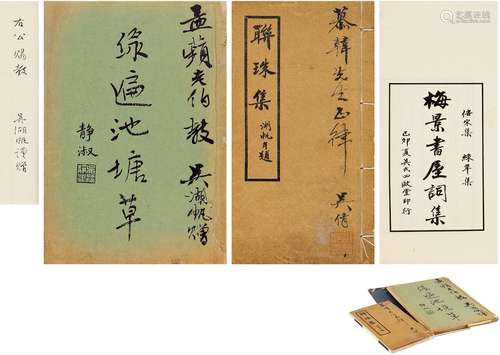 左公賜教
吳湖帆謹贈
孟蘋老伯教
吳湖帆贈
綠遍池塘草
靜淑
慕韓先生正律
吳倩
聯珠集
湖帆自題
梅景書屋詞集
己卯夏吳氏四歐堂印行